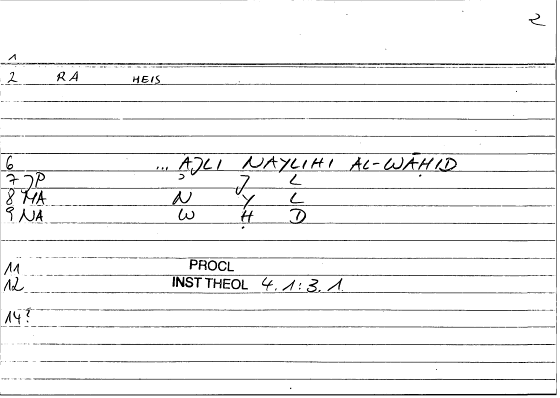 2
1
2 RA HEIS
6 ... AJLI NAYLIHI AL-WĀḤID
7 JP ʾ J L
8 MA N Y L
9 NA W Ḥ D
11 PROCL
12 INST THEOL 4.1:3.1
14?